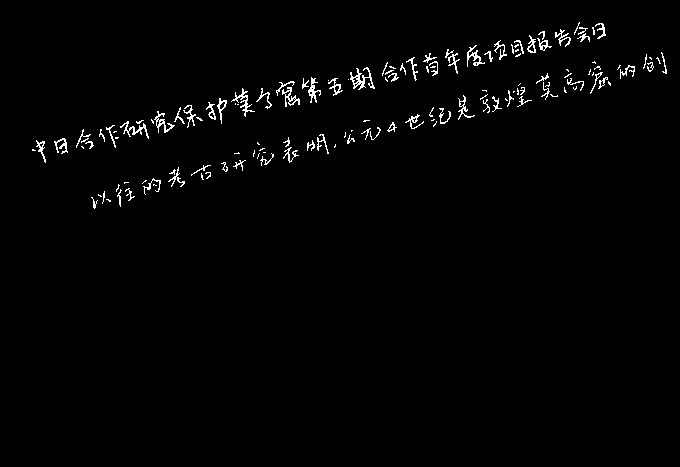 中日合作研究保护莫高窟第五期合作首年度项目报告会日
以往的考古研究表明,公元4世纪是敦煌莫高窟的创